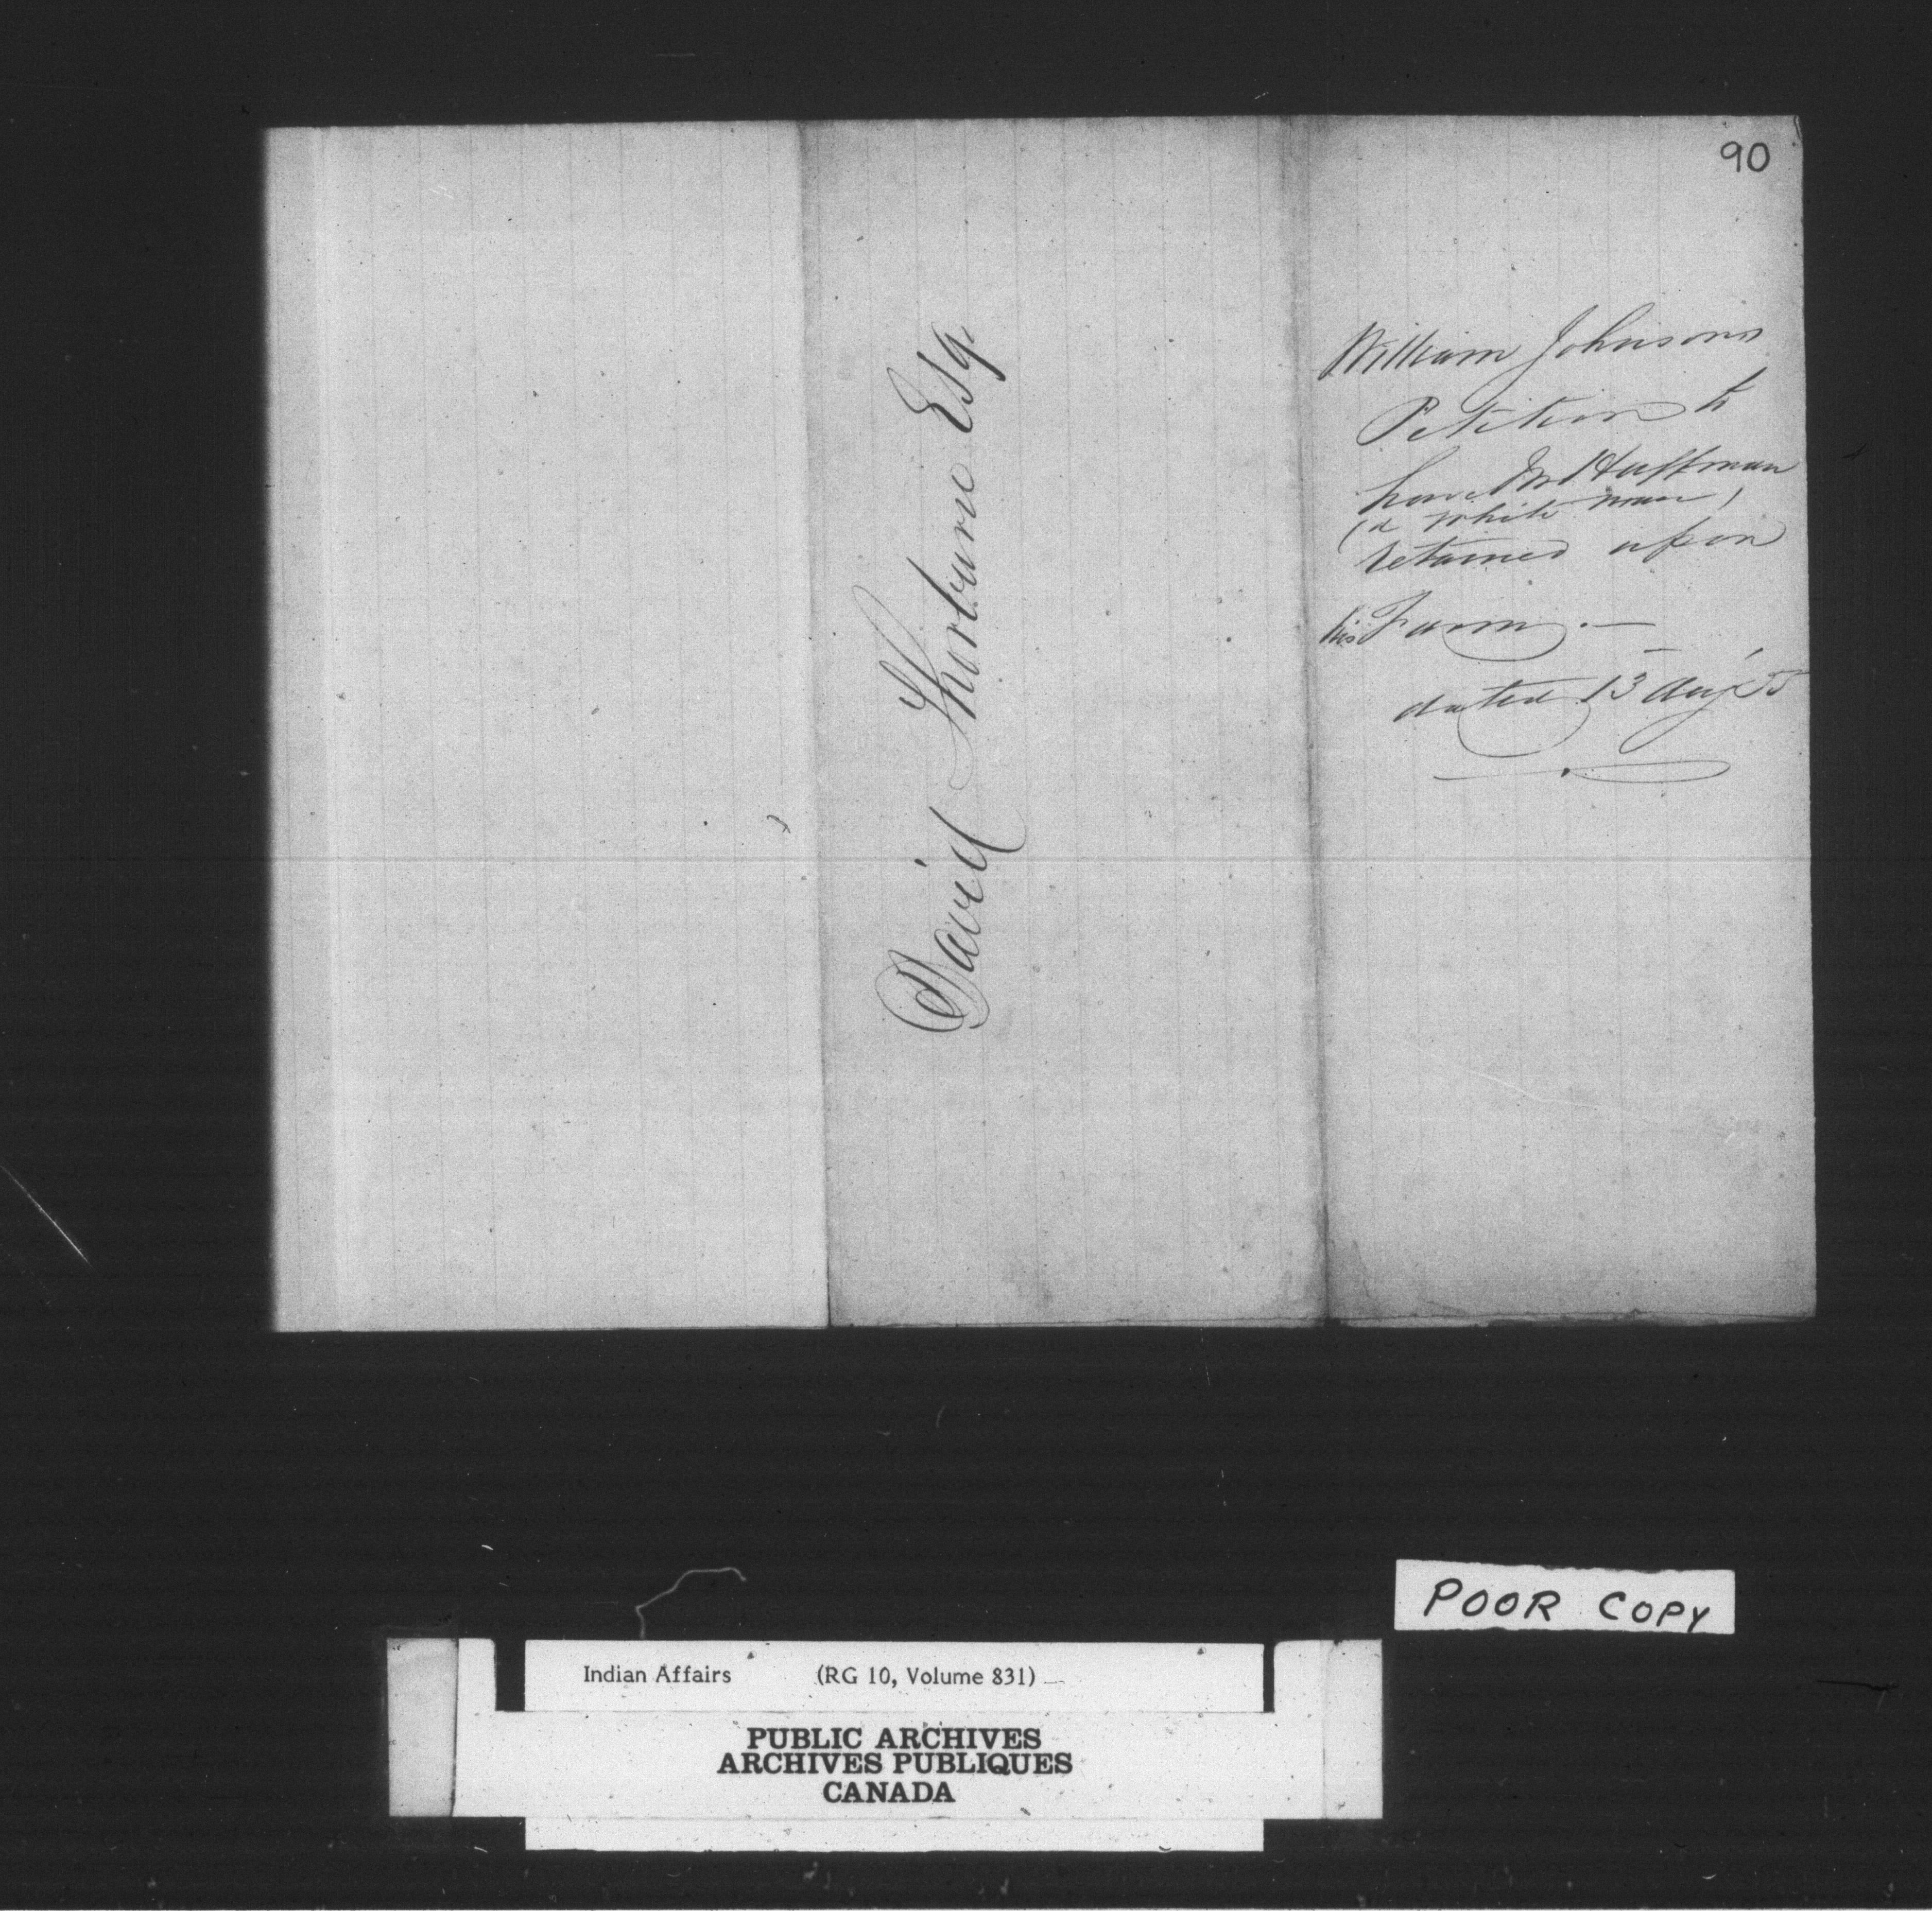 90
David Thorburne Esq.
William Johnsons
Petition to
have Mr Huffman
(a white man)
retained upon
his Farm. —
dated 13 Aug
POOR COPY
Indian Affairs (RG 10, Volume 831)
PUBLIC ARCHIVES
ARCHIVES PUBLIQUES
CANADA